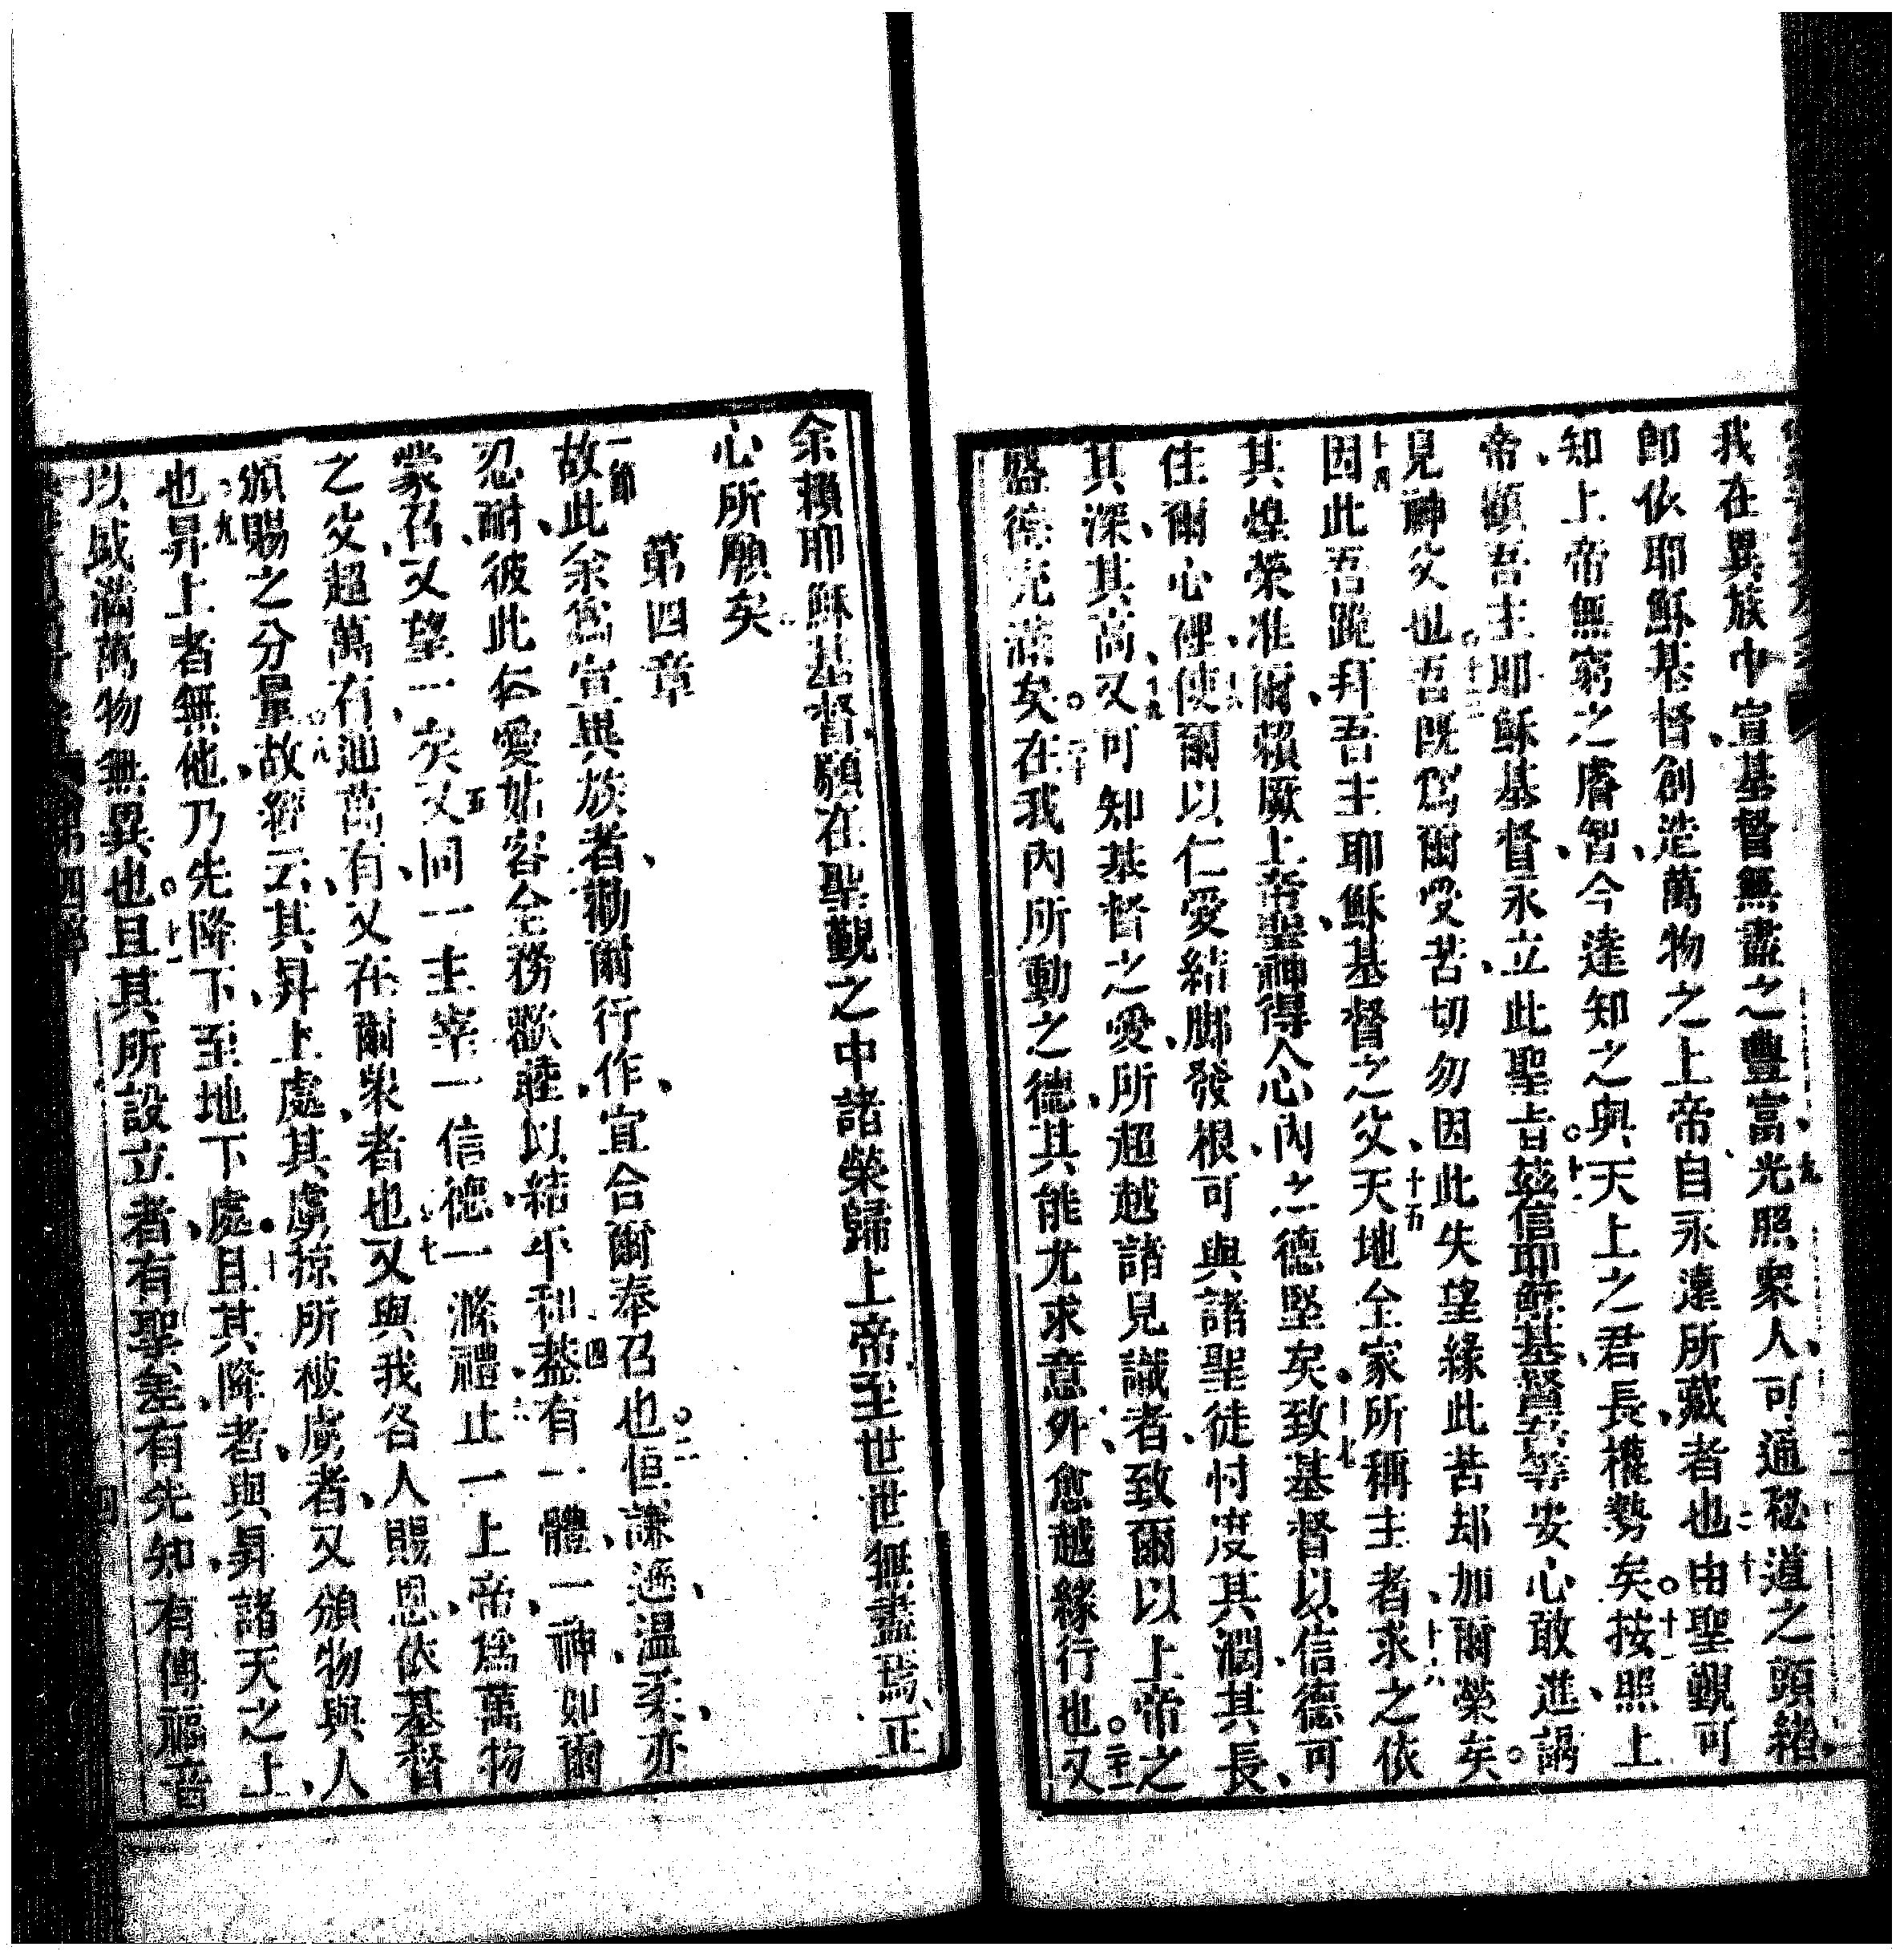 我在異族中、宣基督無盡之豐富、九光照衆人、可通秘道之頭緒、
卽依耶穌基督、創造萬物之上帝、自永遠所藏者也、十由聖覲可
知上帝無窮之睿智、今達知之與天上之君長、權勢矣。十一按照上
帝、頤吾主耶穌基督、永立此聖旨。十二茲信耶穌基督、吾等安心敢進、謁
見神父也。十三吾既爲爾受苦、切勿因此失望、緣此苦却加爾榮矣。
十四因此吾跪拜吾主耶穌基督之父、十五天地全家、所稱主者、十六求之依
其煌榮、准爾賴厥上帝聖神、得人心內之德堅矣、十七致基督以信德可
住爾心裡、十八使爾以仁愛結脚發根、可與諸聖徒忖度其濶、其長、
其深、其高、十九又可知基督之愛、所超越諸見識者、致爾以上帝之
盛德充滿矣。二十在我內所動之德、其能尤求意外、愈越緣行也。二十一又
余賴耶穌基督、願在聖覲之中、諸榮歸上帝、至世世無盡焉、正
心所願矣
第四章
一節故此余爲宣異族者、勸爾行作、宜合爾奉召也。二恒謙遜、溫柔、亦
忍耐、彼此仁愛姑容、全務歡睦、以結平和、四蓋有一體、一神、如爾
蒙召、又望一矣、五又同一主宰、一信德、一滌禮、六止一上帝、爲萬物
之父、超萬有、迪萬有、又在爾衆者也、七又與我各人賜恩、依基督
頒賜之分量、八故經云、其昇上處、其虜掠所被虜者、又頒物與人
也、九昇上者無他、乃先降下、至地下處、十且其降者、與昇諸天之上、
以咸滿萬物無異也。十一且其所設立者、有聖差、有先知、有傳福音